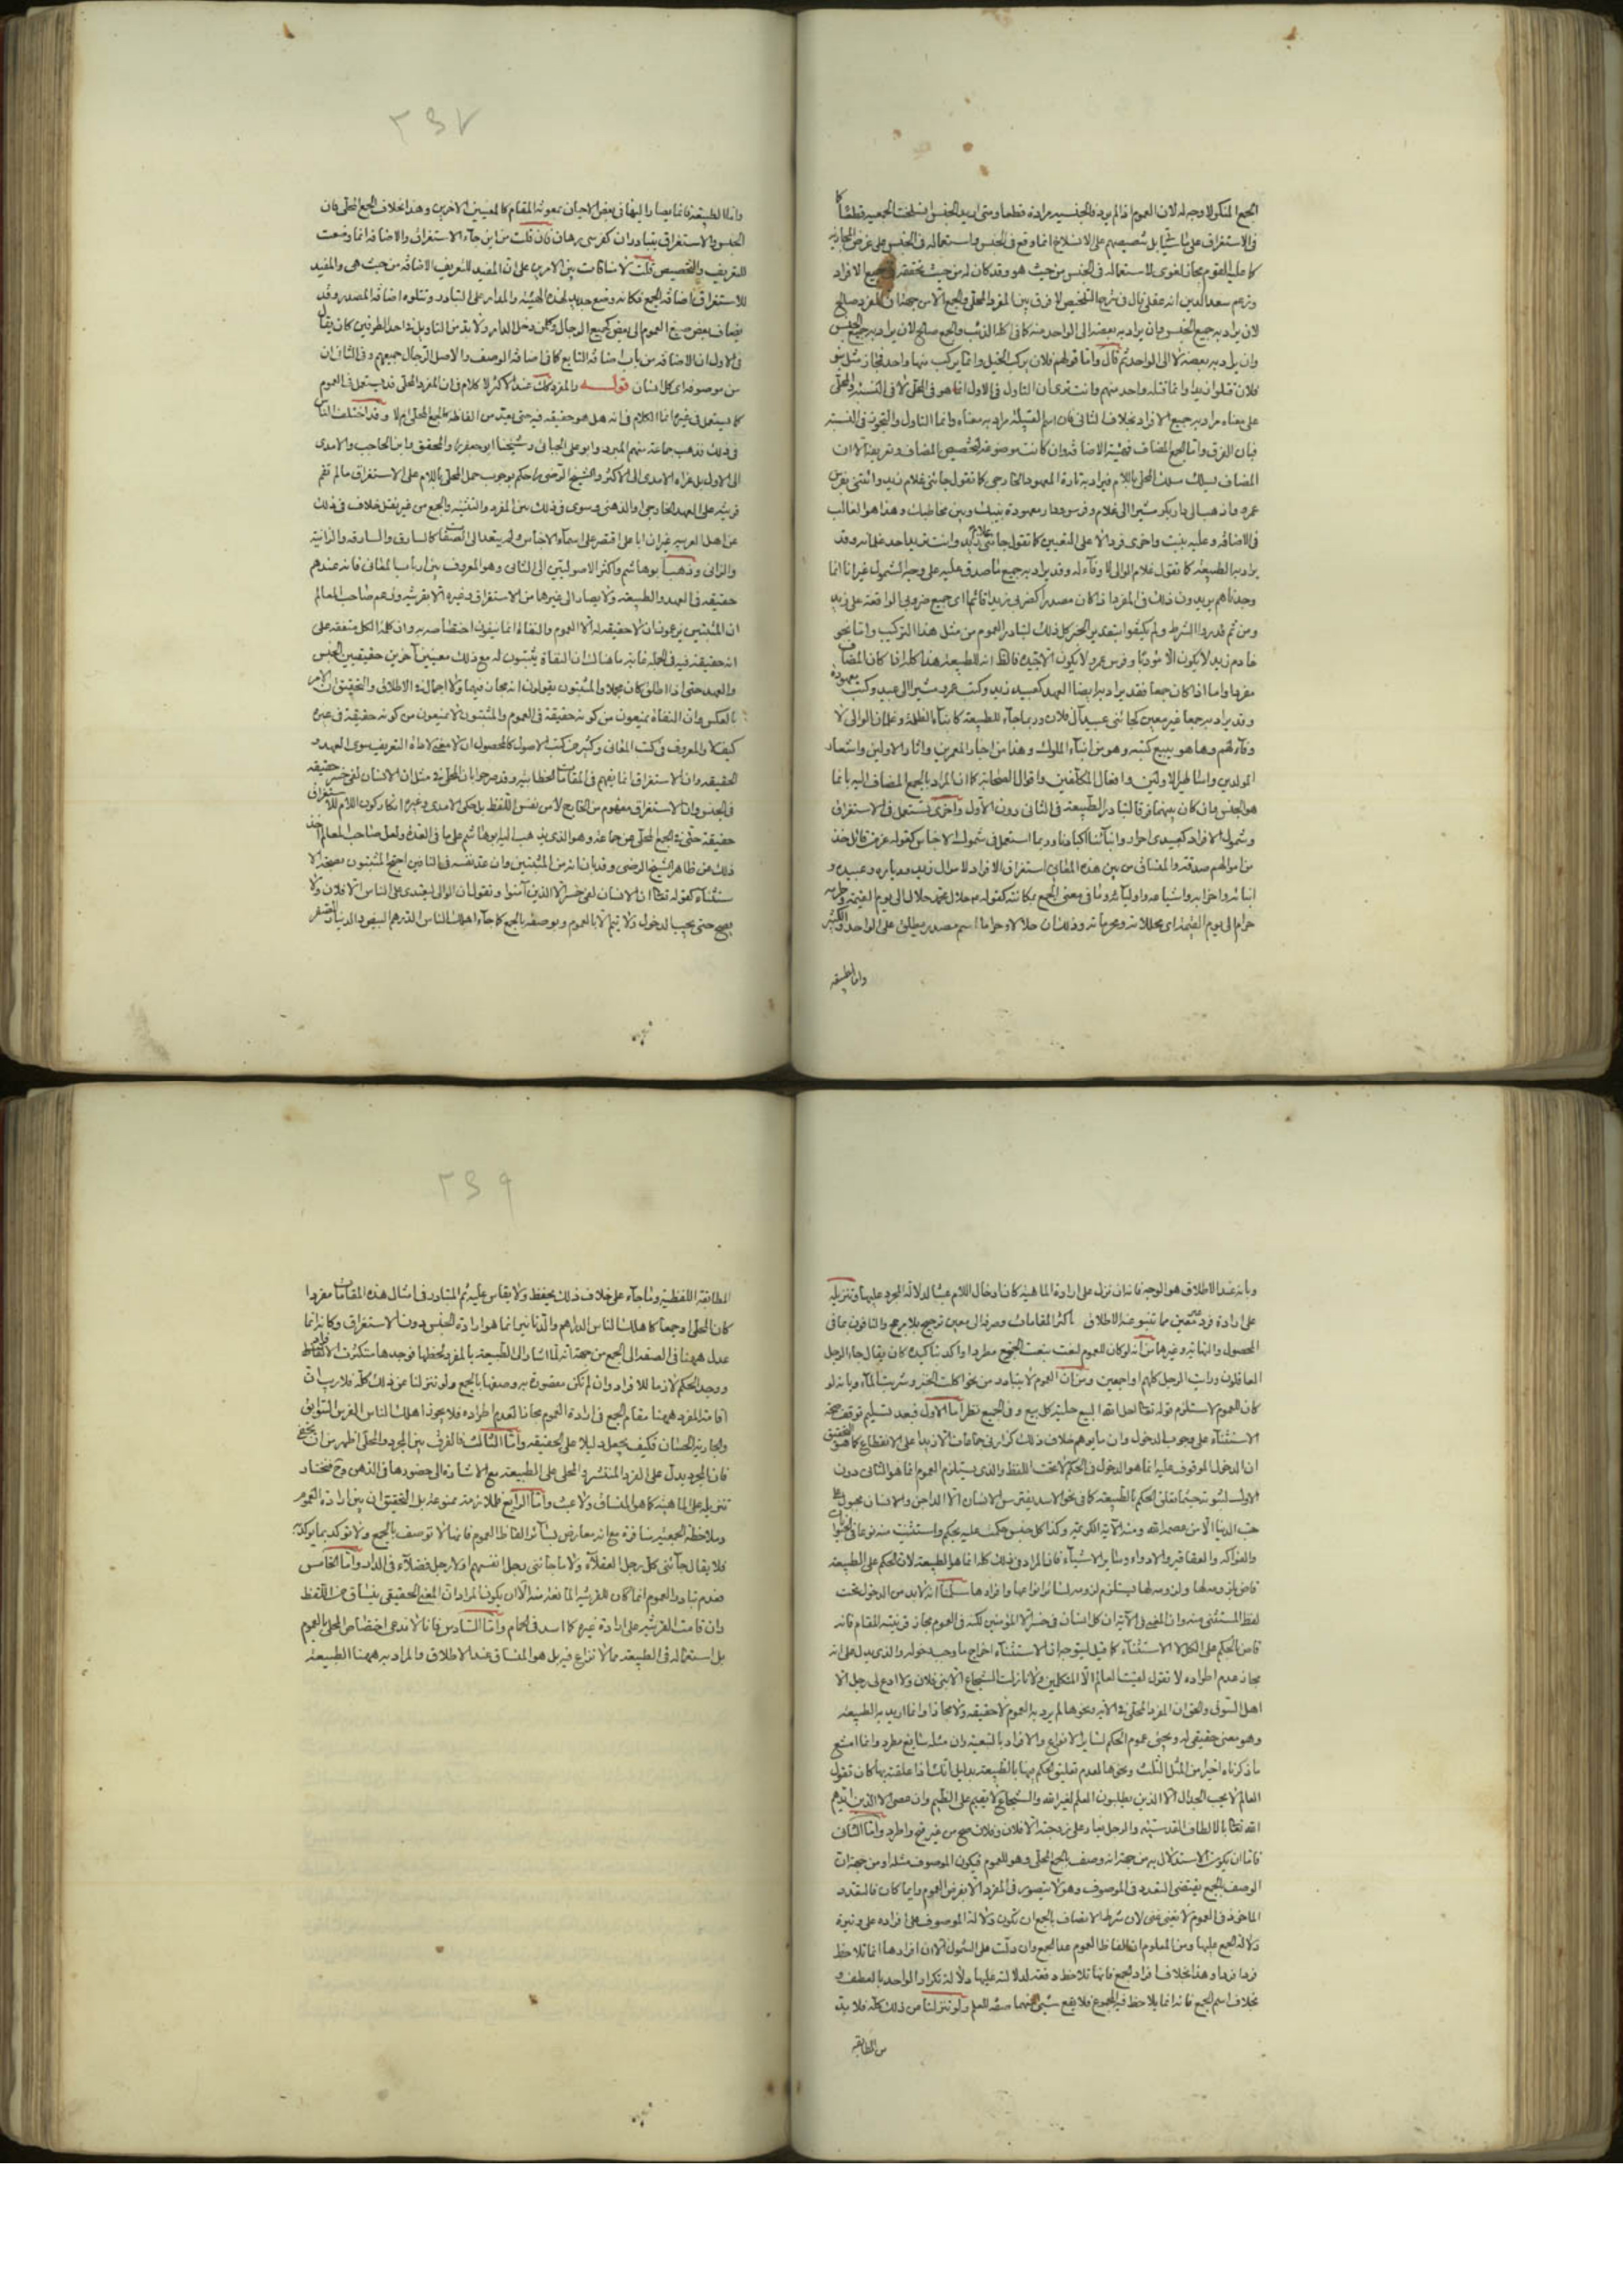 الجمع المنكر ولا وجه له لان العموم اذا لم يرد فالجنسية مرادة قطعا ومتى اريد الجنس انسلخت الجمعية قطعا كما
في الاستغراق على
كما عليه القوم مجاز لغوى لاستعماله في الجنس من حيث هو وقد كان له من حيث تحققه في جميع الافراد
وزعم سعد الدين انه عقلي قال في شرح التلخيص لا فرق بين المفرد المحلى والجمع الا من جهة ان المفرد صالح
لان يراد به جميع الجنس وان يراد به بعضه الى الواحد منه كما في اكله الذئب والجمع صالح لان يراد به جميع الجنس
وان يراد به بعضه لا الى الواحد ثم قال واما قولهم فلان يركب الخيل وانما يركب منها واحدا فمجاز مثل بنو
فلان قتلوا زيدا وانما قتله واحد منهم وانت ترى ان التاول في الاول انما هو في المحلى لا في النسبة والمحلى
على معناه مراد به جميع الافراد بخلاف الثاني فان اسم القبيلة مراد به معناه وانما التاول والتجوز في النسبة
فبان الفرق واما الجمع المضاف فهيئة الاضافة وان كانت موضوعة لتخصيص المضاف وتعريفه الا ان
المضاف ليسلك مسلك المحلى باللام فيراد به تارة المعهود الخارجي كما تقول جائني غلام زيد وائتني بفرس
عمرو واذهب الى دار بكر مشيرا الى غلام وفرس ودار معهودة بينك وبين مخاطبك وهذا هو الغالب
في الاضافة وعليه بنيت واخرى فرد لا على التعيين كما تقول جائني غلام زيد وانت تريد احد غلمانه وقد
يراد به الطبيعة كما تقول غلام الوالي لا وقاء له وقد يراد به جميع ما صدق عليه على وجه الشمول غير انا انما
وجدناهم يريدون ذلك في المفرد اذا كان مصدرا كضربي زيدا قائما اى جميع ضروبي الواقعة على زيد
ومن ثم قدروا الشرط ولم يكتفوا بتقدير الخبر كل ذلك لتبادر العموم من مثل هذا التركيب واما نحو
خادم زيد لا يكون الا مؤدبا وفرس عمرو لا يكون الا نجيبة فالظ انه للطبيعة هذا كله اذا كان المضاف
مفردا واما اذا كان جمعا فقد يراد به ايضا العهد كعبيد زيد وكتب عمرو مشيرا الى عبيد وكتب معهودة
وقد يراد به جمعا غير معين كجائني عبيد آل فلان وربما جاء للطبيعة كابناء الظلمة وغلمان الوالي لا
وفاء لهم وها هو يبيع كتبه وهو من ابناء الملوك وهذا من اخبار المعربين واثار الاولين واشعار
المولدين وامثال الاولين وافعال المكلفين واقوال الصحابة كما ان المراد بالجمع المضاف اليه انما
هو الجنس وان كان بينهما فرقا لتبادر الطبيعة في الثاني دون الاول واخرى يستعمل في الاستغراق
وشموله الافراد كعبيدى احرار وابنائنا اكبادنا وربما استعمل في شموله الاجناس كقوله عز من قائل خذ
من اموالهم صدقة والمنساق من بين هذه المعاني استغراق الافراد كاموال زيد ودياره وعبيده و
ابنائه واخوانه واشياعه واوليائه وما في معنى الجمع بمكانته كقوله ع حلال محمد حلال الى يوم القيمة وحرامه
حرام الى يوم القيمة اى محللاته ومحرماته وذلك ان حلالا وحراما اسم مصدر يطلق على الواحد والكثير
واما الطبيعة
٢٣٧
واما الطبيعة فانما يصار اليها في بعض الاحيان بمعونة المقام كالمعنيين الاخرين وهذا بخلاف الجمع المحلى فان
الجنس والاستغراق يتبادران كفرسي رهان فان قلت من اين جاء الاستغراق والاضافة انما وضعت
للتعريف والتخصيص قلت لا منافات بين الامرين على ان المفيد للتعريف الاضافة من حيث هي والمفيد
للاستغراق اضافة الجمع فكانه وضع جديد لهذه الهيئة والمدار على التبادر وتتلوه اضافة المصدر وقد
يضاف بعض صيغ العموم الى بعض كجميع الرجال وكل من دخل الدار ولا بد من التاويل في احد الطرفين كان يقال
في الاول ان الاضافة من باب اضافة التابع كما في اضافة الوصف والاصل الرجال جميعهم وفي الثاني ان
من موصوفة اى كل انسان قوله والمفرد كك عند الاكثر لا كلام في ان المفرد المحلى قد يستعمل في العموم
كما يستعمل في غيره انما الكلام في انه هل هو حقيقة فيه حتى يعد من الفاظه كالجمع المحلى ام لا وقد اختلف الناس
في ذلك فذهب جماعة منهم المبرد وابو على الجبائي وشيخنا ابو جعفر ره والمحقق وابن الحاجب والامدى
الى الاول بل عزاه الامدى الى الاكثر والشيخ الرضي ره حكم بوجوب حمل المحلى باللام على الاستغراق مالم تقم
قرينة على العهد الخارجي او الذهني وسوى في ذلك بين المفرد والتثنية والجمع من غير نقل خلاف في ذلك
عن اهل العربية غير ان ابا على اقتصر على اسماء الاجناس ولم يتعد الى الصفات كالسارق والسارقة والزانية
والزاني وذهب ابو هاشم واكثر الاصوليين الى الثاني وهو المعروف بين ارباب المعاني فانه عندهم
حقيقة في العهد والطبيعة ولا يصار الى غيرها من الاستغراق وغيره الا بقرينة وزعم صاحب المعالم
ان المثبتين يزعمون ان لا حقيقة له الا العموم والنفاة انما ينفون اختصاصه به وان كلمة الكل متفقة على
انه حقيقة فيه في الجملة غاية ما هناك ان النفاة يثبتون له مع ذلك معنيين آخرين حقيقيين الجنس
والعهد حتى اذا اطلق كان مجملا والمثبتون يقولون انه مجاز فيهما ولا اجمال في الاطلاق والتحقيق ان الامر
بالعكس وان النفاة يمنعون من كونه حقيقة في العموم والمثبتون لا يمنعون من كونه حقيقة في غيره
كيف لا والمعروف في كتب المعاني وكثير من كتب الاصول كالمحصول ان لا معنى لاداة التعريف سوى العهد و
الحقيقة وان الاستغراق انما يفهم في المقامات الخطابية وقد صرحوا بان المحلى في مثل ان الانسان لفي خسر حقيقة
في الجنس وان الاستغراق مفهوم من الخارج لا من نفس اللفظ بل حكى الامدى وغيره انكار كون اللام للاستغراق
حقيقة حتى في الجمع المحلى عن جماعة وهو الذى يذهب اليه ابو هاشم على ما في العدة ولعل صاحب المعالم اخذ
ذلك من ظاهر الشيخ الرضي وقد بان انه من المثبتين وان عد نفسه في النافين احتج المثبتون بصحة الا
ستثناء كقوله تعالى ان الانسان لفي خسر الا الذين آمنوا وتقول ان الوالي يعتدى على الناس الا فلان ولا
يصح حتى يجب الدخول ولا يتم الا بالعموم وبوصفه بالجمع كما جاء اهلك الناس الدرهم البيض والدينار الصفر
وبانه عند الاطلاق هو الوجه فانه ان نزل على ارادة الماهية كان ادخال اللام عبثا لدلالة المجرد عليها وتنزيله
على ارادة فرد معين مما تنبو عنه الاطلاق اكثر المقامات وصرفه الى معين ترجيح بلا مرجح والنافون بما في
المحصول والنهاية وغيرها من انه لو كان للعموم لنعت بنعت الجمع مطردا واكد تاكيده كان يقال جاء الرجل
العاقلون ورايت الرجل كلهم او اجمعين ومن ان العموم لا يتبادر من نحو اكلت الخبز وشربت الماء وبانه لو
كان للعموم لاستلزم قوله تعالى احل الله البيع حلية كل بيع وفي الجميع نظر اما الاول فبعد تسليم توقف صحة
الاستثناء على وجوب الدخول وان ما يوهم خلاف ذلك كزارني جماعات الا زيدا على الانقطاع كما هو التحقيق
ان الدخول الموقوف عليه انما هو الدخول في الحكم لا تحت اللفظ والذى يستلزم العموم انما هو الثاني دون
الاول لثبوته حيثما تعلق الحكم بالطبيعة كما في نحو الاسد يفترس الانسان الا الداجن والانسان مجبول على
حب الدنيا الا من عصمه الله ومنه الآية الكريمة وكذا كل جنس حكمت عليه بحكم واستثنيت منه نوعا كالحيوانات
والفواكه والعقاقير والادواء وسائر الاشياء فان المراد في ذلك كله انما هو الطبيعة لان الحكم على الطبيعة
قاض بلزومه لها ولزومه لها يستلزم لزومه لسائر انواعها وافرادها سلمنا انه لا بد من الدخول تحت
لفظ المستثنى منه وان المعنى في الآية ان كل انسان في خسر الا المؤمنين لكنه في العموم مجاز قرينته المقام فانه
قاض بالحكم على الكل لا الاستثناء كما قيل ليتوجه ان الاستثناء اخراج ما وجب دخوله والذى يدل على انه
مجاز عدم اطراده لا تقول لقيت العالم الا المتكلمين ولا نازلت الشجاع الا بني فلان ولا ادع لى رجل الا
اهل السوق والحق ان المفرد المحلى في الآية ونحوها لم يرد به العموم لا حقيقة ولا مجازا وانما اريد به الطبيعة
وهو معنى حقيقي له ويجئ عموم الحكم لسائر الانواع والافراد بالتبعية وان مثله شايع مطرد وانما امتنع
ما ذكرناه اخيرا من المثل الثلث ونحوها لعدم تعليق الحكم فيها بالطبيعة بدليل انك اذا علقته بها كان تقول
العالم لا يحب الجدال الا الذين يطلبون العلم لغير الله والشجاع لا يقيم على الضيم وان عصى الا الذين ايدهم
الله تعالى بالالطاف القدسية والرجل يغار على زوجته الا فلان وفلان صح من غير قبح واطرد واما الثاني
فاما ان يكون الاستدلال به من جهة انه وصف بالجمع المحلى وهو للعموم فيكون الموصوف مثله او من جهة ان
الوصف بالجمع يقتضي التعدد في الموصوف وهو لا يتصور في المفرد الا بفرض العموم وايا ما كان فالتعدد
الماخوذ في العموم لا يغني عني لان شرط الاتصاف بالجمع ان تكون دلالة الموصوف على افراده على وتيرة
دلالة الجمع عليها ومن المعلوم ان الفاظ العموم عدا الجمع وان دلت على الشمول الا ان افرادها انما تلاحظ
فردا فردا وهذا بخلاف افراد الجمع فانها تلاحظ دفعة لدلالته عليها دلالة تكرار الواحد بالعطف و
بخلاف اسم الجمع فانه انما يلاحظ فيه المجموع فلا يقع شئ منهما صفة للعلم ولو تنزلنا عن ذلك كله فلا بد
من المطابقة
٢٣٩
المطابقة اللفظية وما جاء على خلاف ذلك يحفظ ولا يقاس عليه ثم المتبادر في امثال هذه المقامات مفردا
كان المحلى او جمعا كاهلك الناس الدراهم والدنانير انما هو ارادة الجنس دون الاستغراق وكانه انما
عدل ههنا في الصفة الى الجمع من جهة انه لما اشار الى الطبيعة بالمفرد لحظها فوجدها متكثرة الافراد
ووجد الحكم لازما للافراد وان لم تكن مقصودة به وصفها بالجمع ولو تنزلنا عن ذلك كله فلا ريب ان
اقامة المفرد ههنا مقام الجمع في ارادة العموم مجاز لعدم اطراده فلا يجوز اهلك الناس الفرس السوابق
والجارية الحسان فكيف يجعل دليلا على الحقيقة واما الثالث فالفرق بين المجرد والمحلى اظهر من ان يخفى
فان المجرد يدل على الفرد المنتشر والمحلى على الطبيعة مع الاشارة الى حضورها في الذهن وح فنختار
تنزيله على الماهية كما هو المنساق ولا عبث واما الرابع فالملازمة ممنوعة بل التحقيق ان بين ارادة العموم
وملاحظة الجمعية منافرة مع انه معارض بسائر الفاظ العموم فانها لا توصف بالجمع ولا توكد بما يوكده
فلا يقال جائني كل رجل العقلاء ولا ما جائني رجل انفسهم او لا رجل فضلاء في الدار واما الخامس
فعدم تبادر العموم انما كان للقرينة المانعة منه الا ان يكون المراد ان المعنى الحقيقي ينساق من اللفظ
وان قامت القرينة على ارادة غيره كما اسد في الحمام واما السادس فانا لا ندعى اختصاص المحلى بالعموم
بل استعماله في الطبيعة مما لا نزاع فيه بل هو المنساق عند الاطلاق والمراد به ههنا الطبيعة